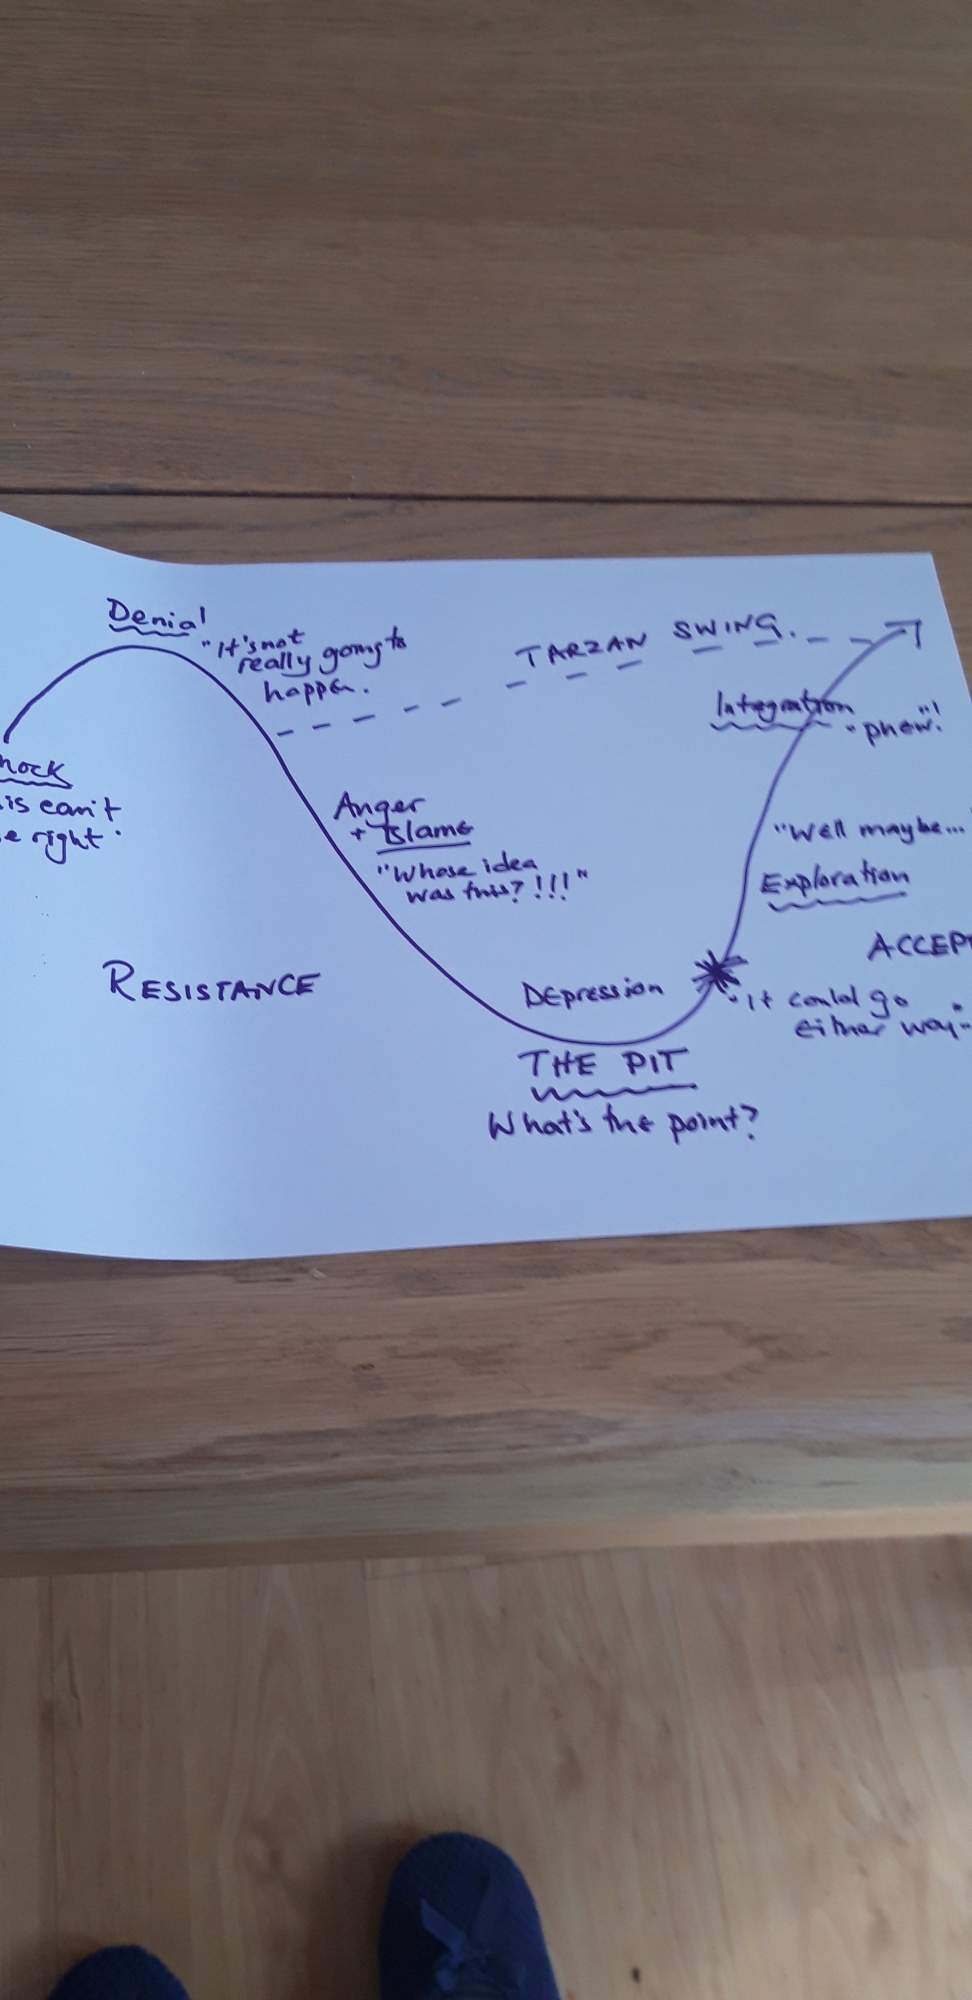 Denial
"It's not
really going to
happen.
TARZAN SWING.
Integration
"phew"!
hock
is can't
e right.
Anger
+ Blame
"Whose idea
was this? !!!"
"Well maybe...
Exploration
ACCEP
RESISTANCE
Depression
"It could go
either way"
THE PIT
What's the point?